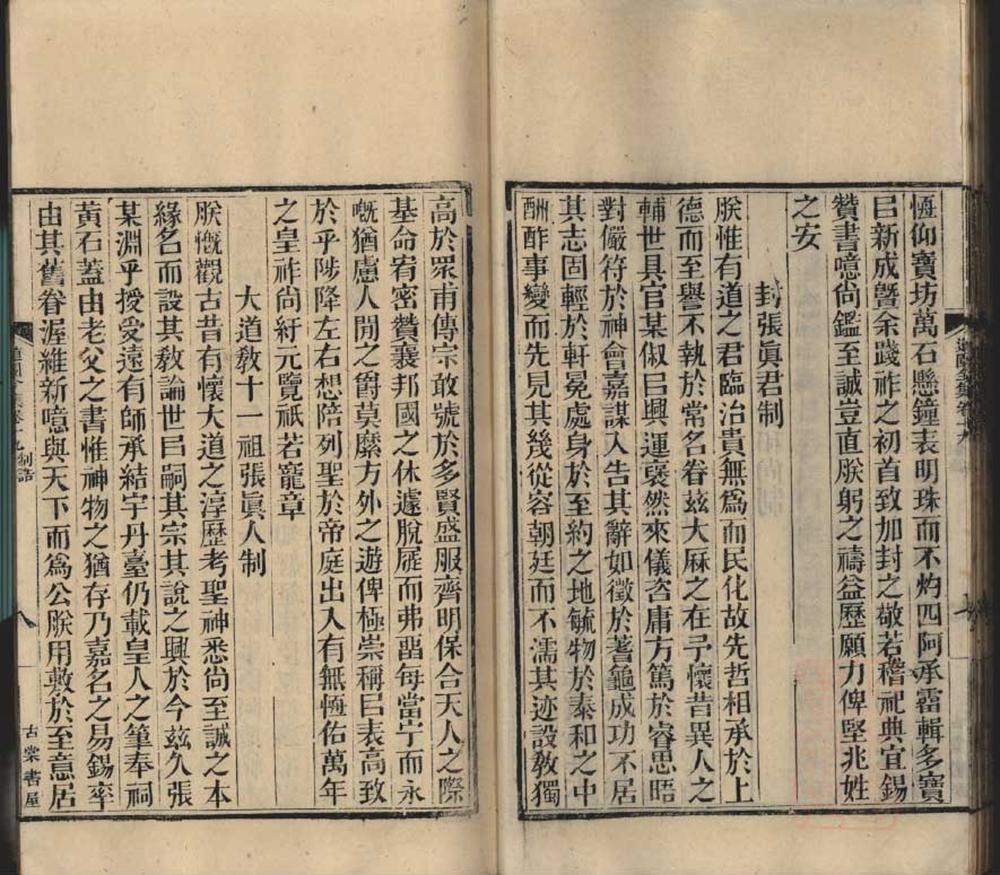 恆仰寶坊萬石懸鐘表明珠而不灼四阿承霤輯多寶
㠯新成曁余踐祚之初首致加封之敬若稽祀典宜錫
贊書噫尚鑑至誠豈直朕躬之禱益歷願力俾堅兆姓
之安
封張眞君制
朕惟有道之君臨治貴無爲而民化故先哲相承於上
德而至譽不執於常名眷茲大庥之在予懷昔異人之
輔世具官某俶㠯興運襃然來儀咨庸方篤於睿思晤
對儼符於神會嘉謀入告其辭如徵於蓍龜成功不居
其志固輕於軒冕處身於至約之地毓物於泰和之中
酬酢事變而先見其幾從容朝廷而不濡其迹設敎獨
高於眾甫傳宗敢號於多賢盛服齊明保合天人之際
基命宥密贊襄邦國之休遽脫屣而弗畱每當宁而永
嘅猶慮人閒之爵莫縻方外之遊俾極崇稱㠯表高致
於乎陟降左右想陪列聖於帝庭出入有無恆佑萬年
之皇祚尚紆元覽祇若寵章
大道敎十一祖張眞人制
朕慨觀古昔有懷大道之淳歷考聖神悉尚至誠之本
緣名而設其敎論世㠯嗣其宗其說之興於今茲久張
某淵乎授受遠有師承結宇丹臺仍載皇人之筆奉祠
黃石蓋由老父之書惟神物之猶存乃嘉名之易錫率
由其舊眷渥維新噫與天下而爲公朕用敷於至意居
道園全集卷十九
制誥
八
古棠書屋